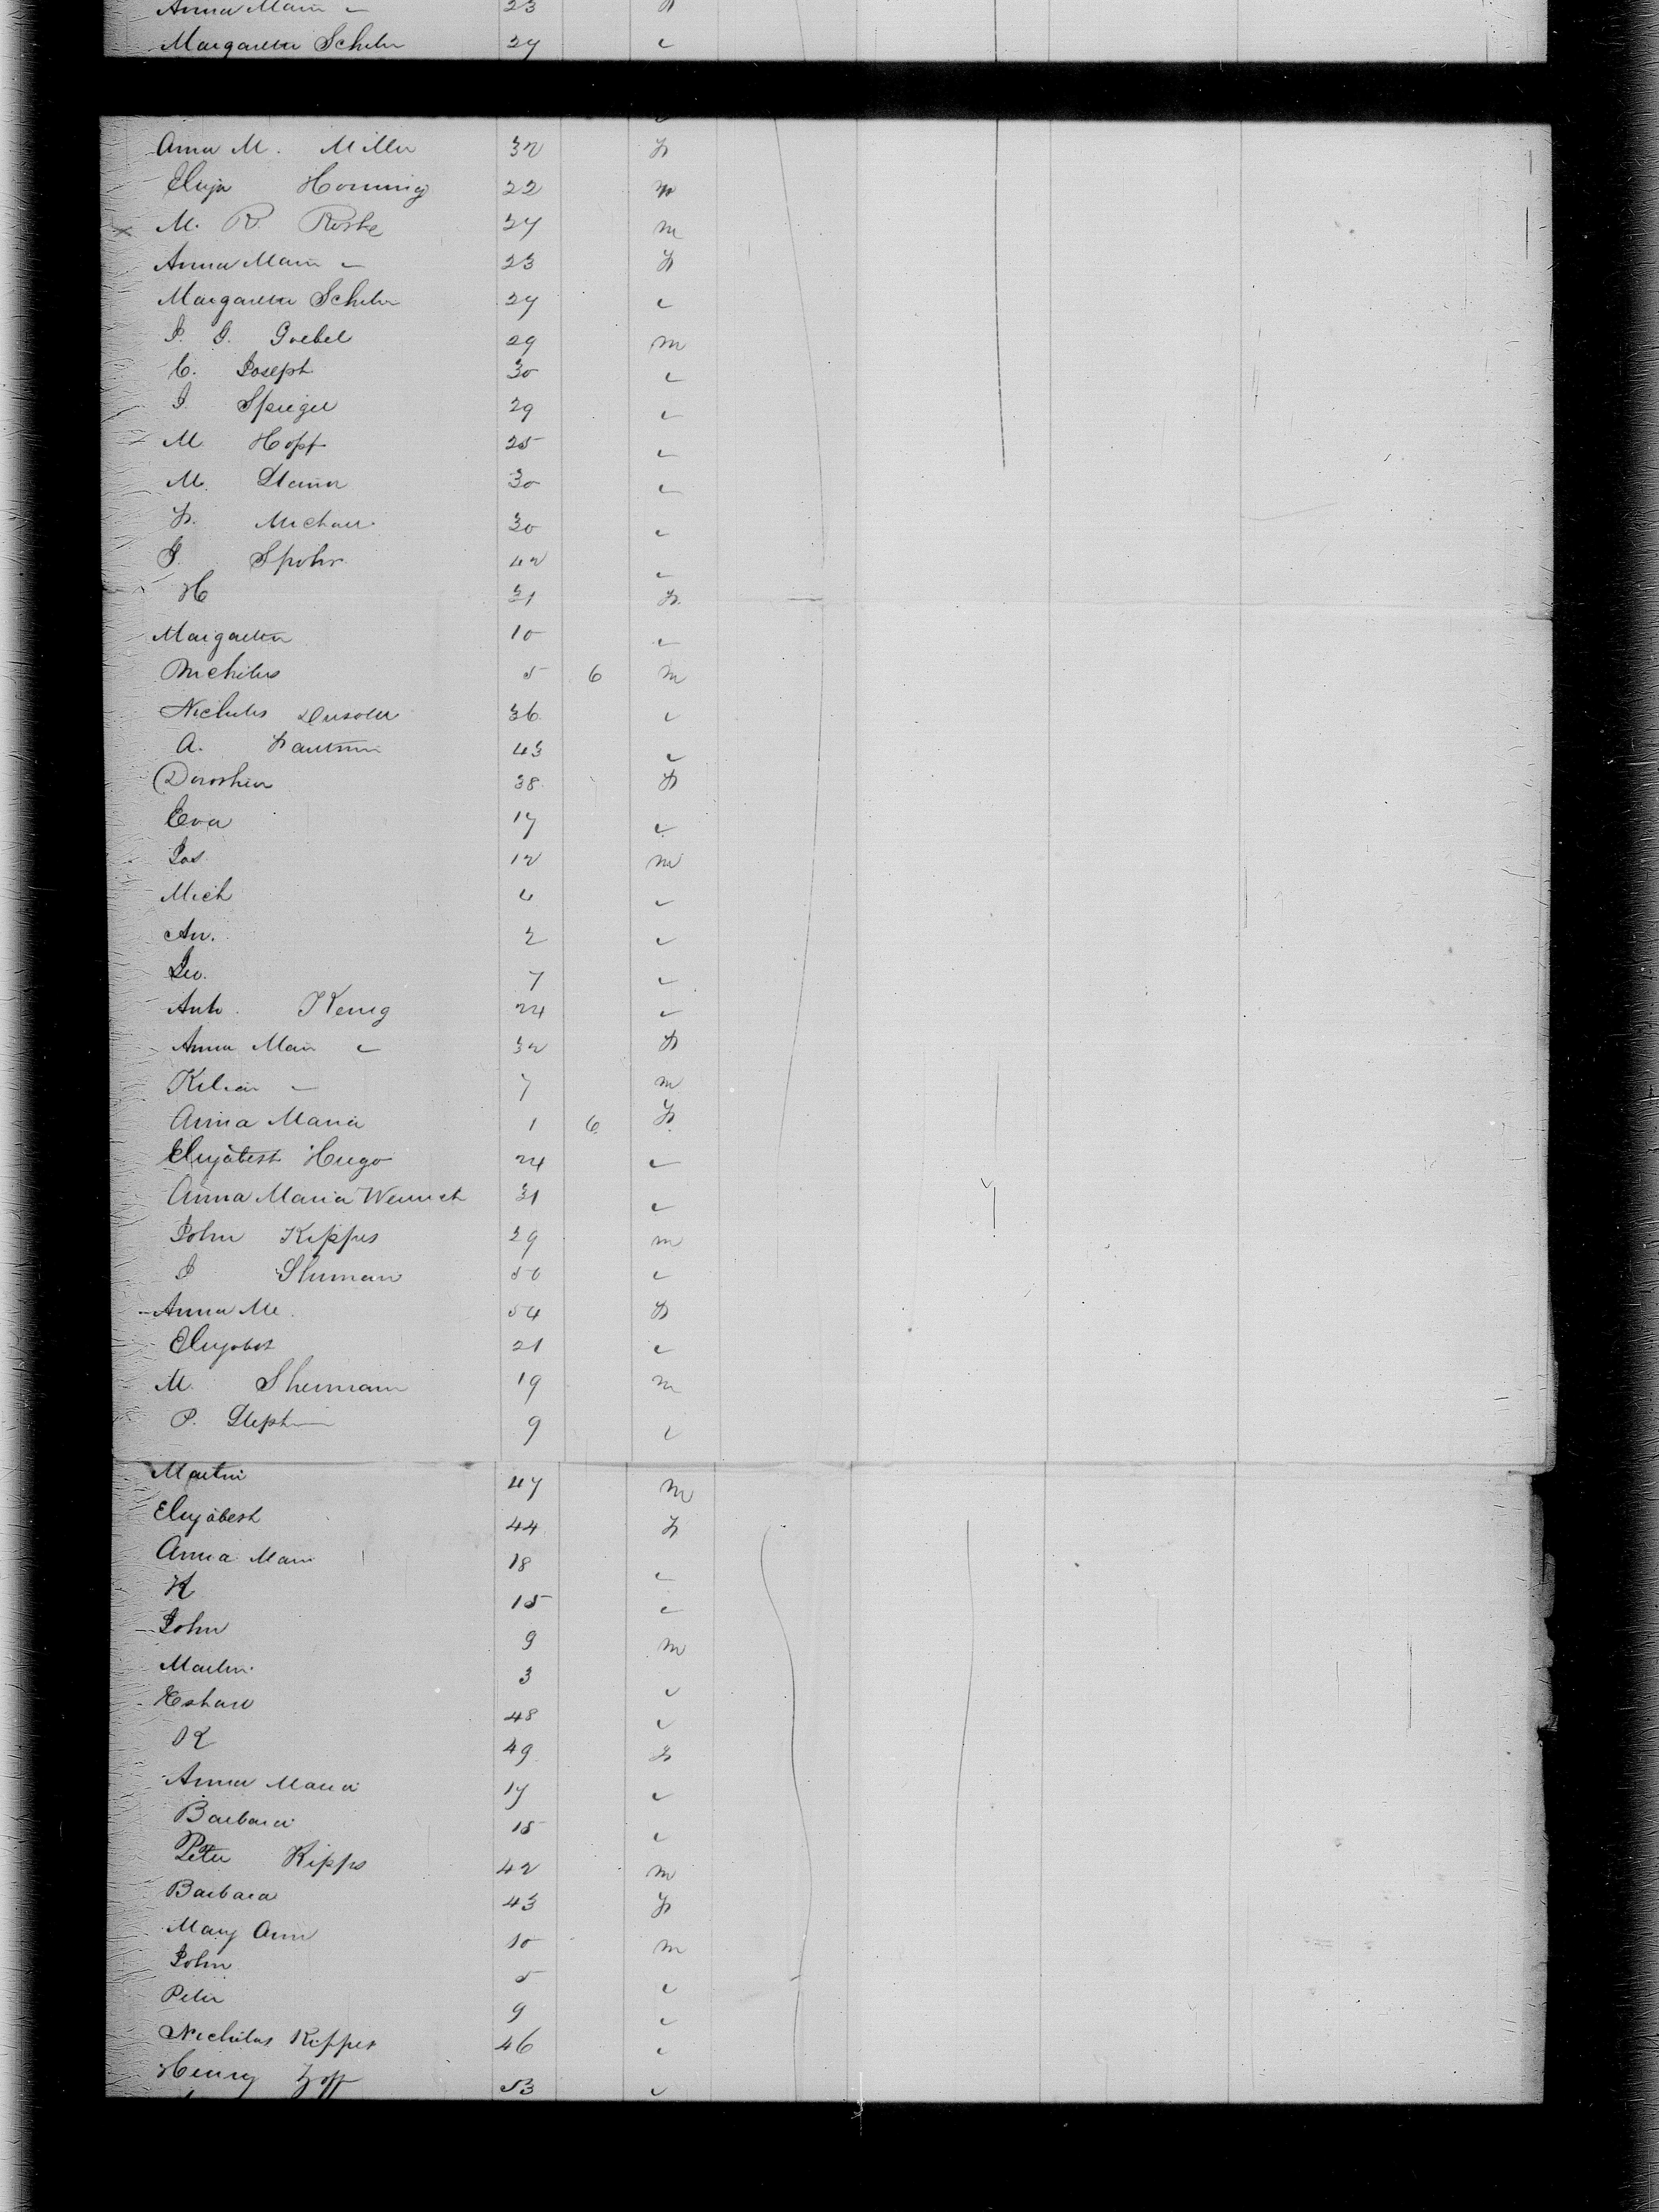 Anna Mari 〃 23 F
Margaretta Scheler 27 〃
Anna M. Miller 32 F
Eliza Horning 22 m
M. R. 27 m
Anna Mari 〃 23 F
Margaretta Scheler 27 〃
J. G. Goebel 29 m
C. Joseph 30 〃
J. Spiegel 29 〃
M. Hopf 25 〃
M. 30 〃
F. Michael 30 〃
J. Spohr 42 〃
H 31 F
Margaretta 10 〃
Nicholus 5 6 m
Nicholus 36 〃
A. 43 〃
Dorothea 38 F
Eva 17 〃
Jos 12 m
Mich 4 〃
An. 2 〃
Leo. 7 〃
Anto. Kenig 24 〃
Anna Mari 〃 32 F
Kilian 〃 7 m
Anna Maria 1 6 F
Elizabeth Hugo 24 〃
Anna Maria 31 〃
John Kippes 29 m
J Shuman 50 〃
Anna M. 54 F
Elizabet 21 〃
M. Sheuman 19 m
P. Steph 9 〃
Martin 47 m
Elizabeth 44 F
Anna Mari 18 〃
K 15 〃
John 9 m
Martin 3 〃
48 〃
K 49 F
Anna Maria 17 〃
Barbara 15 〃
Peter Kipps 42 m
Barbara 43 F
Mary Ann 10 m
John 5 〃
Peter 9 〃
Nicholas Kippes 46 〃
Henry Zopf 53 〃